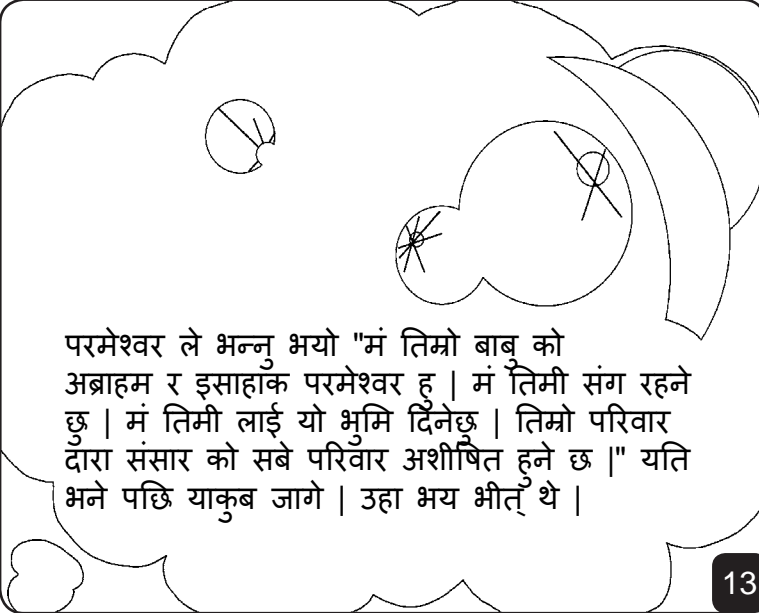 परमेश्वर ले भन्नु भयो "मं तिम्रो बाबु को
अब्राहम र इसाहाक परमेश्वर हु | मं तिमी संग रहने
छु | मं तिमी लाई यो भुमि दिनेछु | तिम्रो परिवार
दारा संसार को सबे परिवार अशीषित हुने छ |" यति
भने पछि याकुब जागे | उहा भय भीत् थे |
13